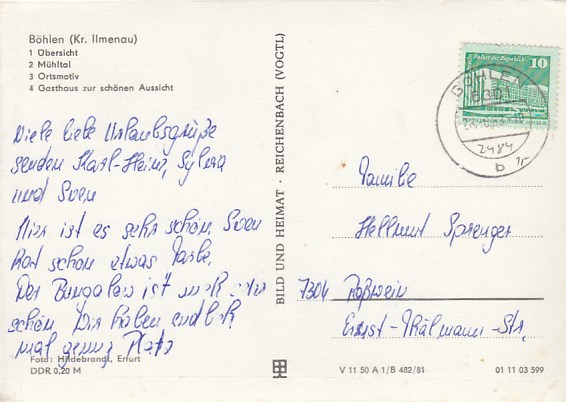 Böhlen (Kr. Ilmenau)
1 Übersicht
2 Mühltal
3 Ortsmotiv
4 Gasthaus zur schönen Aussicht
Viele liebe Urlaubsgrüße
senden Karl-Heinz, Sylvia
und Sven
Hier ist es sehr schön Sven
hat schon etwas Farbe.
Der Bungalow ist
schön. Wir haben endlich
mal genug Platz
Foto: Hildebrandt, Erfurt
DDR 0,20 M
BILD UND HEIMAT · REICHENBACH (VOGTL)
10
Palast der Republik
BÖHLEN
6301
2484
b
Familie
Hellmut Sprenger
7304 Roßwein
Ernst-Thälmann-Str,
V 11 50 A 1/B 482/81
01 11 03 599